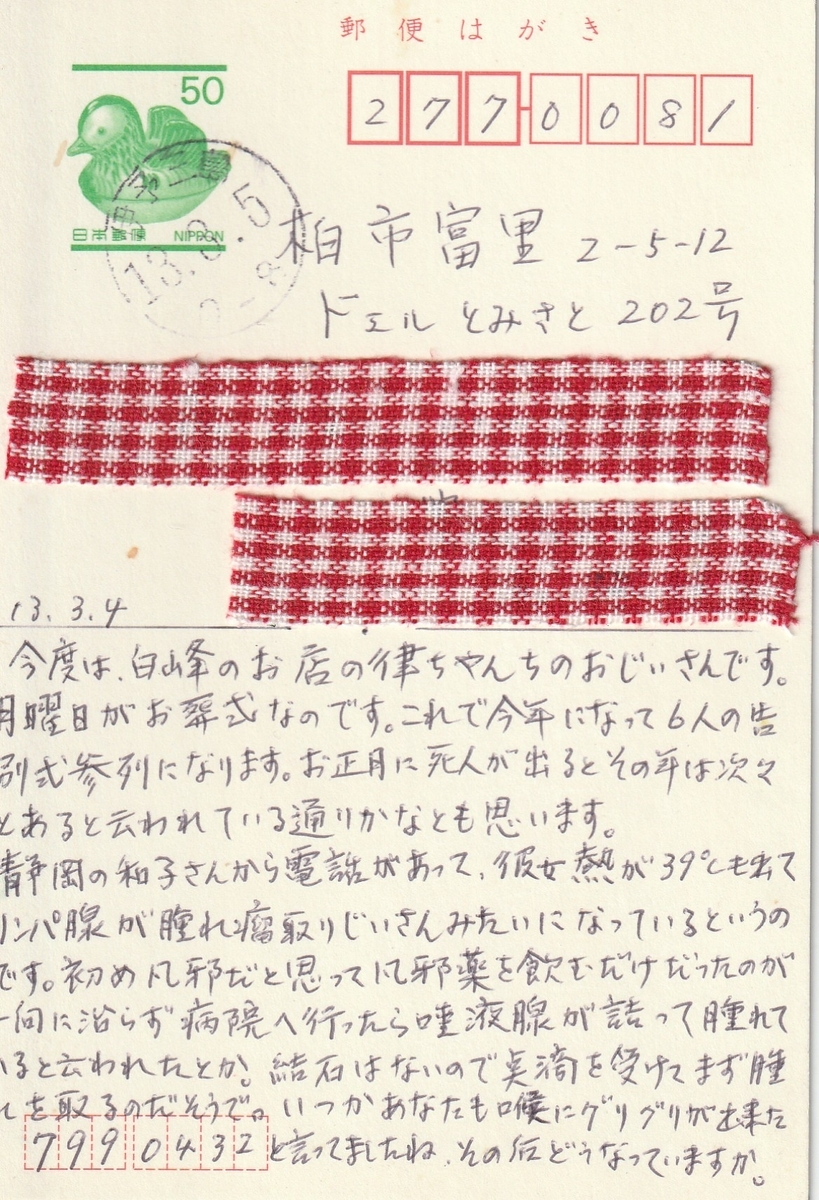 郵便はがき
50
日本郵便 NIPPON
伊予三島
13.3.5
8-
2770081
柏市富里 2-5-12
ドエル とみさと 202号
13.3.4
今度は、白峰のお店の律ちゃんちのおじいさんです。
月曜日がお葬式なのです。これで今年になって6人の告
別式参列になります。お正月に死人が出るとその年は次々
とあると云われている通りかなとも思います。
静岡の和子さんから電話があって、彼女熱が39℃も出て
リンパ腺が腫れ瘤取りじいさんみたいになっているというの
です。初め凡邪だと思って凡邪薬を飲むだけだったのが
一向に治らず病院へ行ったら唾液腺が詰って腫れて
いると云われたとか。結石はないので点滴を受けてまず腫
れを取るのだそうで。いつかあなたも喉にグリグリが出来た
7990432 と言ってましたね、その后どうなっていますか。